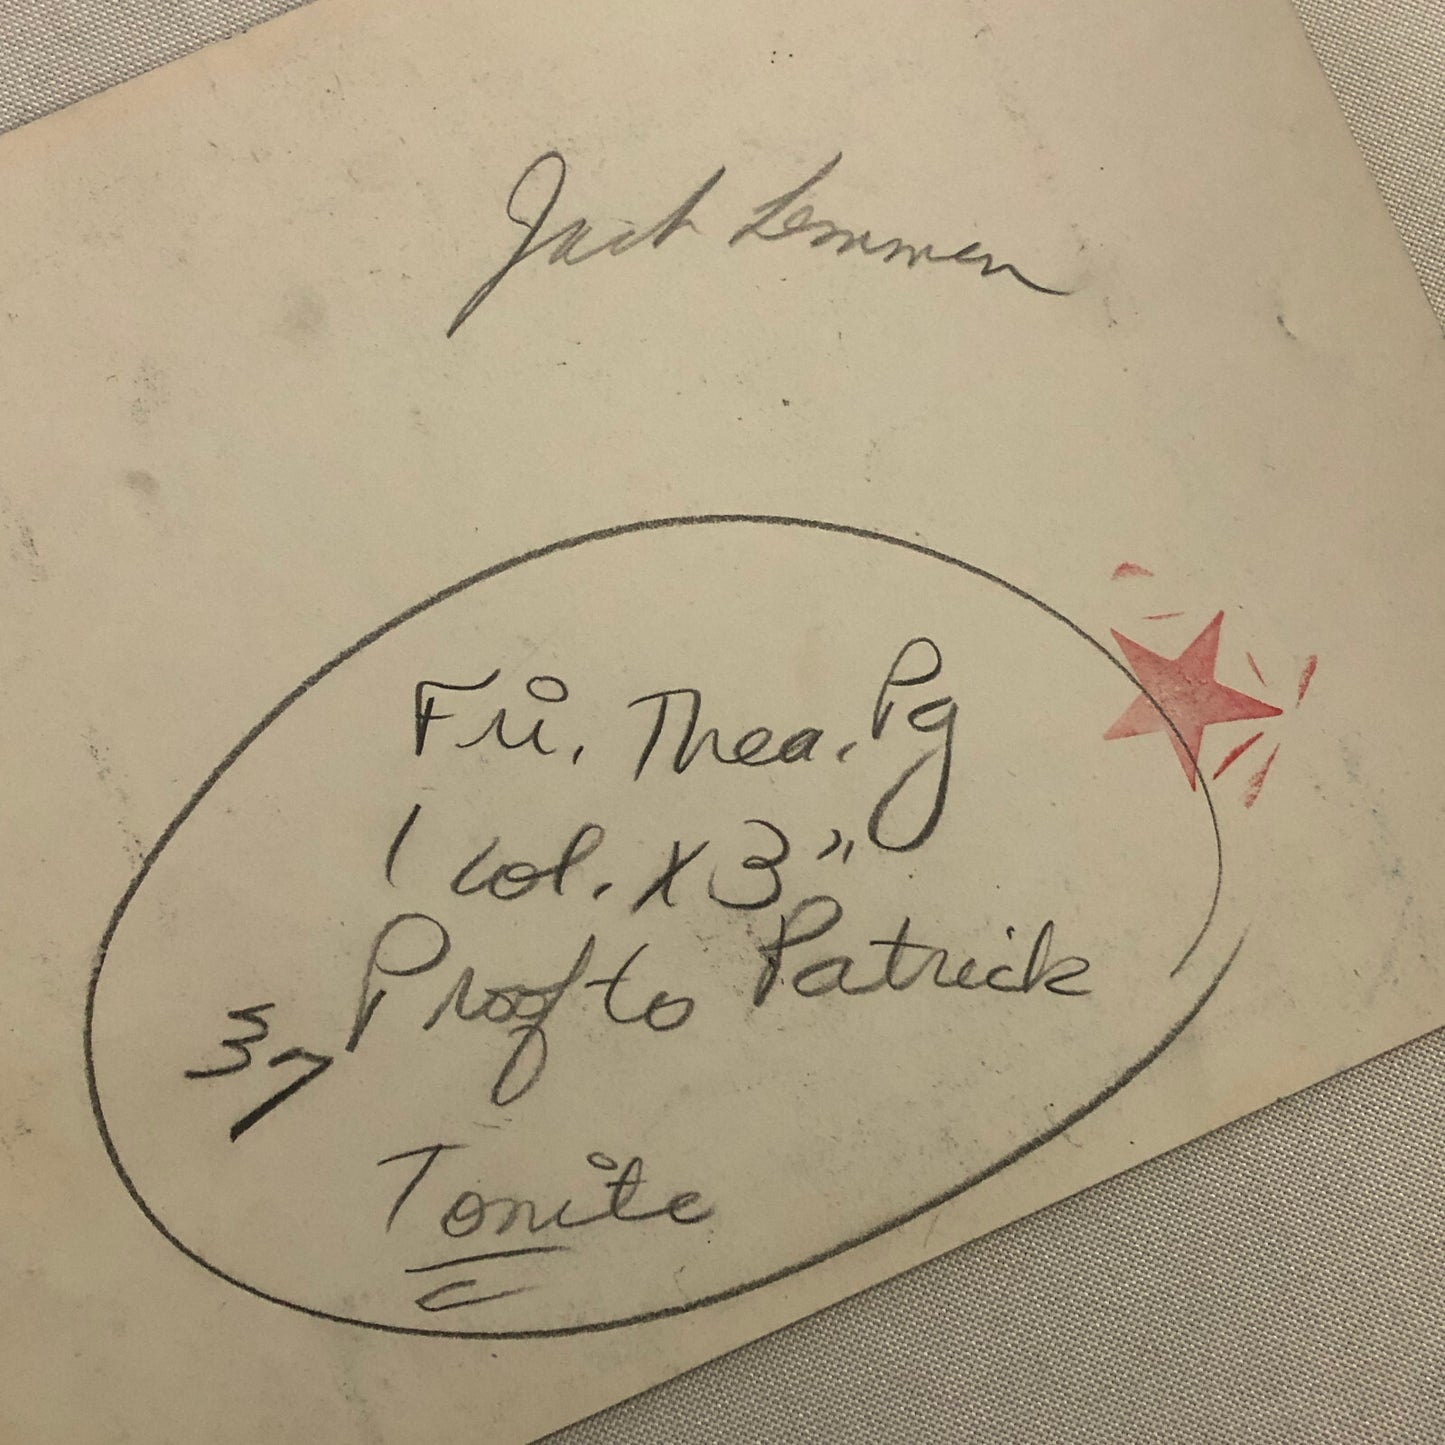 Jack Lemmen
Fri. Thea. Pg
1 col. x 3"
Proof to Patrick
37
Tonite